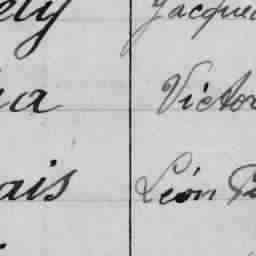 ely Jacque
a Victor
ais Léon